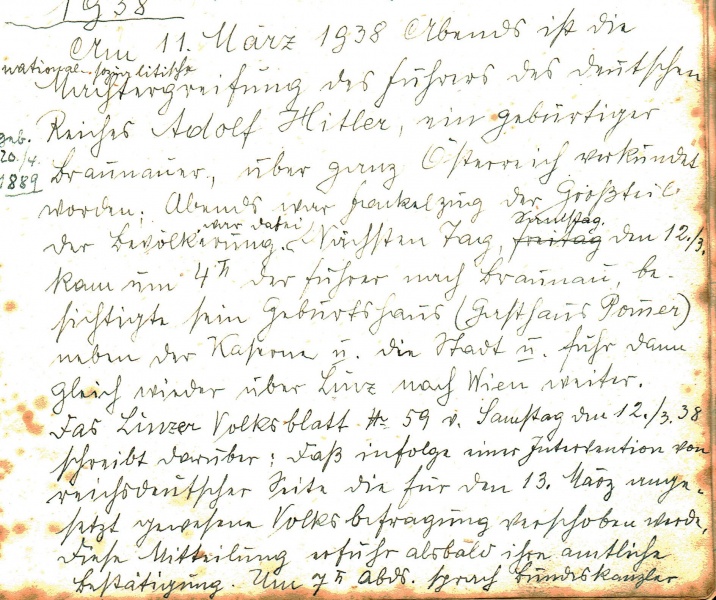 1938
Am 11. März 1938 Abends ist die
national-sozialitische
Machtergreifung des Führers des deutschen
Reiches Adolf Hitler, ein gebürtiger
geb.
20./4.
1889
Braunauer, über ganz Österreich verkündet
worden. Abends war Fackelzug der Großteil
der Bevölkerung war dabei. Nächsten Tag, freitag Samstag. den 12./3.
kam um 4 h der Führer nach Braunau, be-
sichtigte sein Geburtshaus (Gasthaus Pomer)
neben der Kaserne u. die Stadt u. fuhr dann
gleich wieder über Linz nach Wien weiter.
Das Linzer Volksblatt № 59 v. Samstag den 12./3.38
schreibt darüber: Daß infolge einer Intervention von
reichsdeutscher Seite die für den 13. März ange-
setzt gewesene Volksbefragung verschoben werde,
Diese Mitteilung erfuhr alsbald ihre amtliche
Bestätigung. Um 7 h Abds. sprach Bundeskanzler